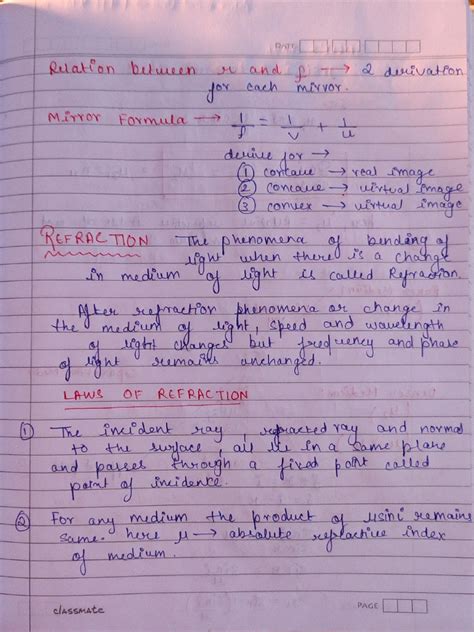 DATE
Relation between r and f → 2 derivation
for each mirror.
Mirror Formula → 1/f = 1/v + 1/u
derive for →
① concave → real image
② concave → virtual image
③ convex → virtual image
REFRACTION The phenomena of bending of
light when there is a change
in medium of light is called Refraction.
After refraction phenomena or change in
the medium of light, speed and wavelength
of light changes but frequency and phase
of light remains unchanged.
LAWS OF REFRACTION
① The incident ray, refracted ray and normal
to the surface, all lie in a same plane
and passes through a fixed point called
point of incidence.
② For any medium the product of μsini remains
same. here μ → absolute refractive index
of medium.
classmate
PAGE